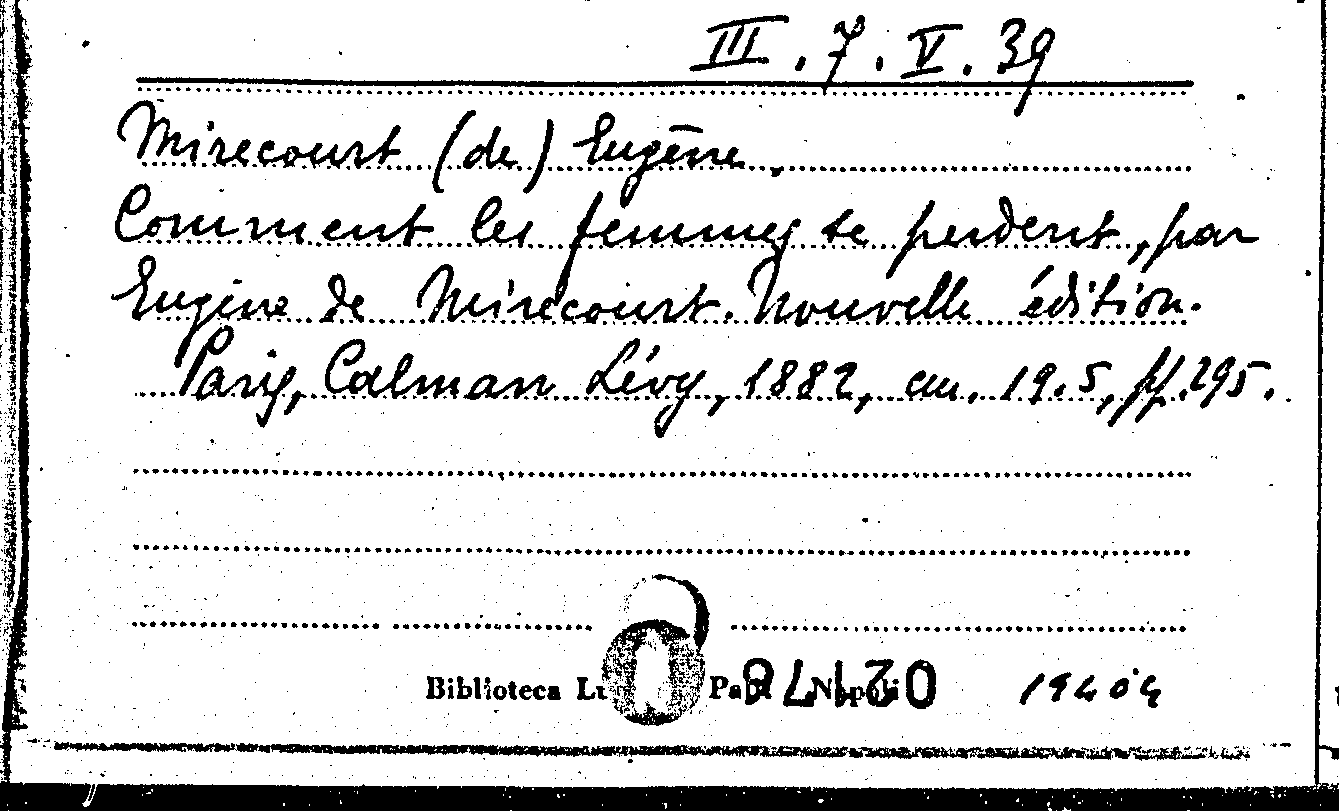 III.7.V.39
Mirecourt (de) Eugène.
Comment les femmes se perdent, par
Eugène de Mirecourt. Nouvelle édition.
Paris, Calman Lévy, 1882, cm. 19.5, pp. 295.
Biblioteca Napoli 19404